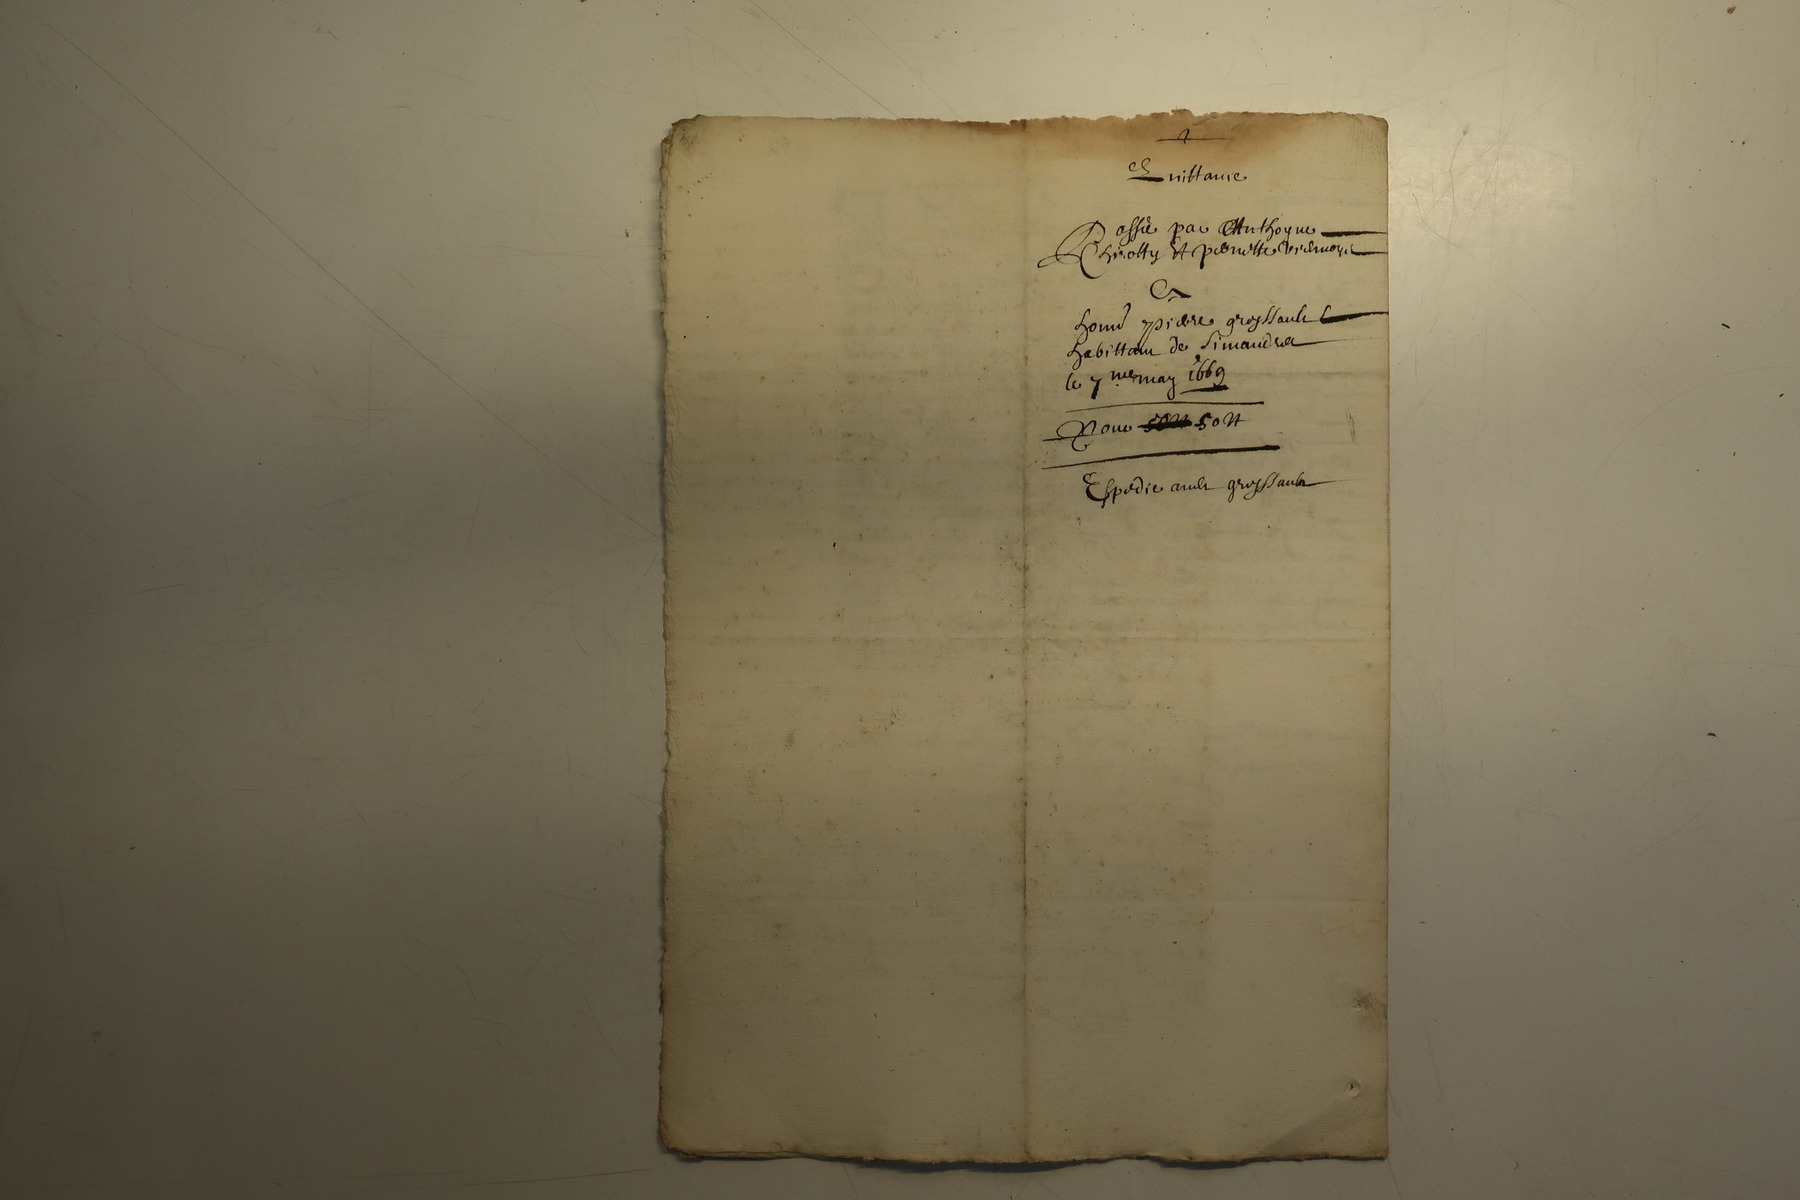 Quittance
Passée par Anthoyne
Chirotty et pernette
A
honn pierre grossault
habittant de Simandre
le 7me may 1669
Pour 50tt 50tt
Expedie audt grossault